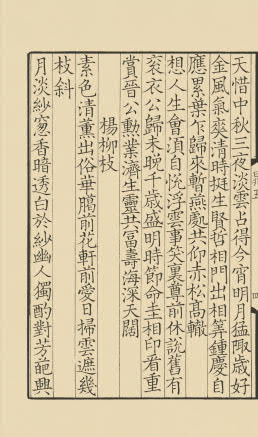 天惜中秋三夜淡雲占得今宵明月猛陬歲好
金風氣爽清時挺生賢哲相門出相筭鍾慶自
應累葉乍歸來暫燕處共仰赤松高轍
想人生會湏自恱浮雲事笑裏尊前休說舊有
衮衣公歸未晚千歲盛明時節命圭相印看重
賞晉公勳業濟生靈共富壽海深天闊
楊柳枝
素色清薰出俗華臈前花軒前愛日掃雲遮幾
枝斜
月淡紗窻香暗透白於紗幽人獨酌對芳葩興